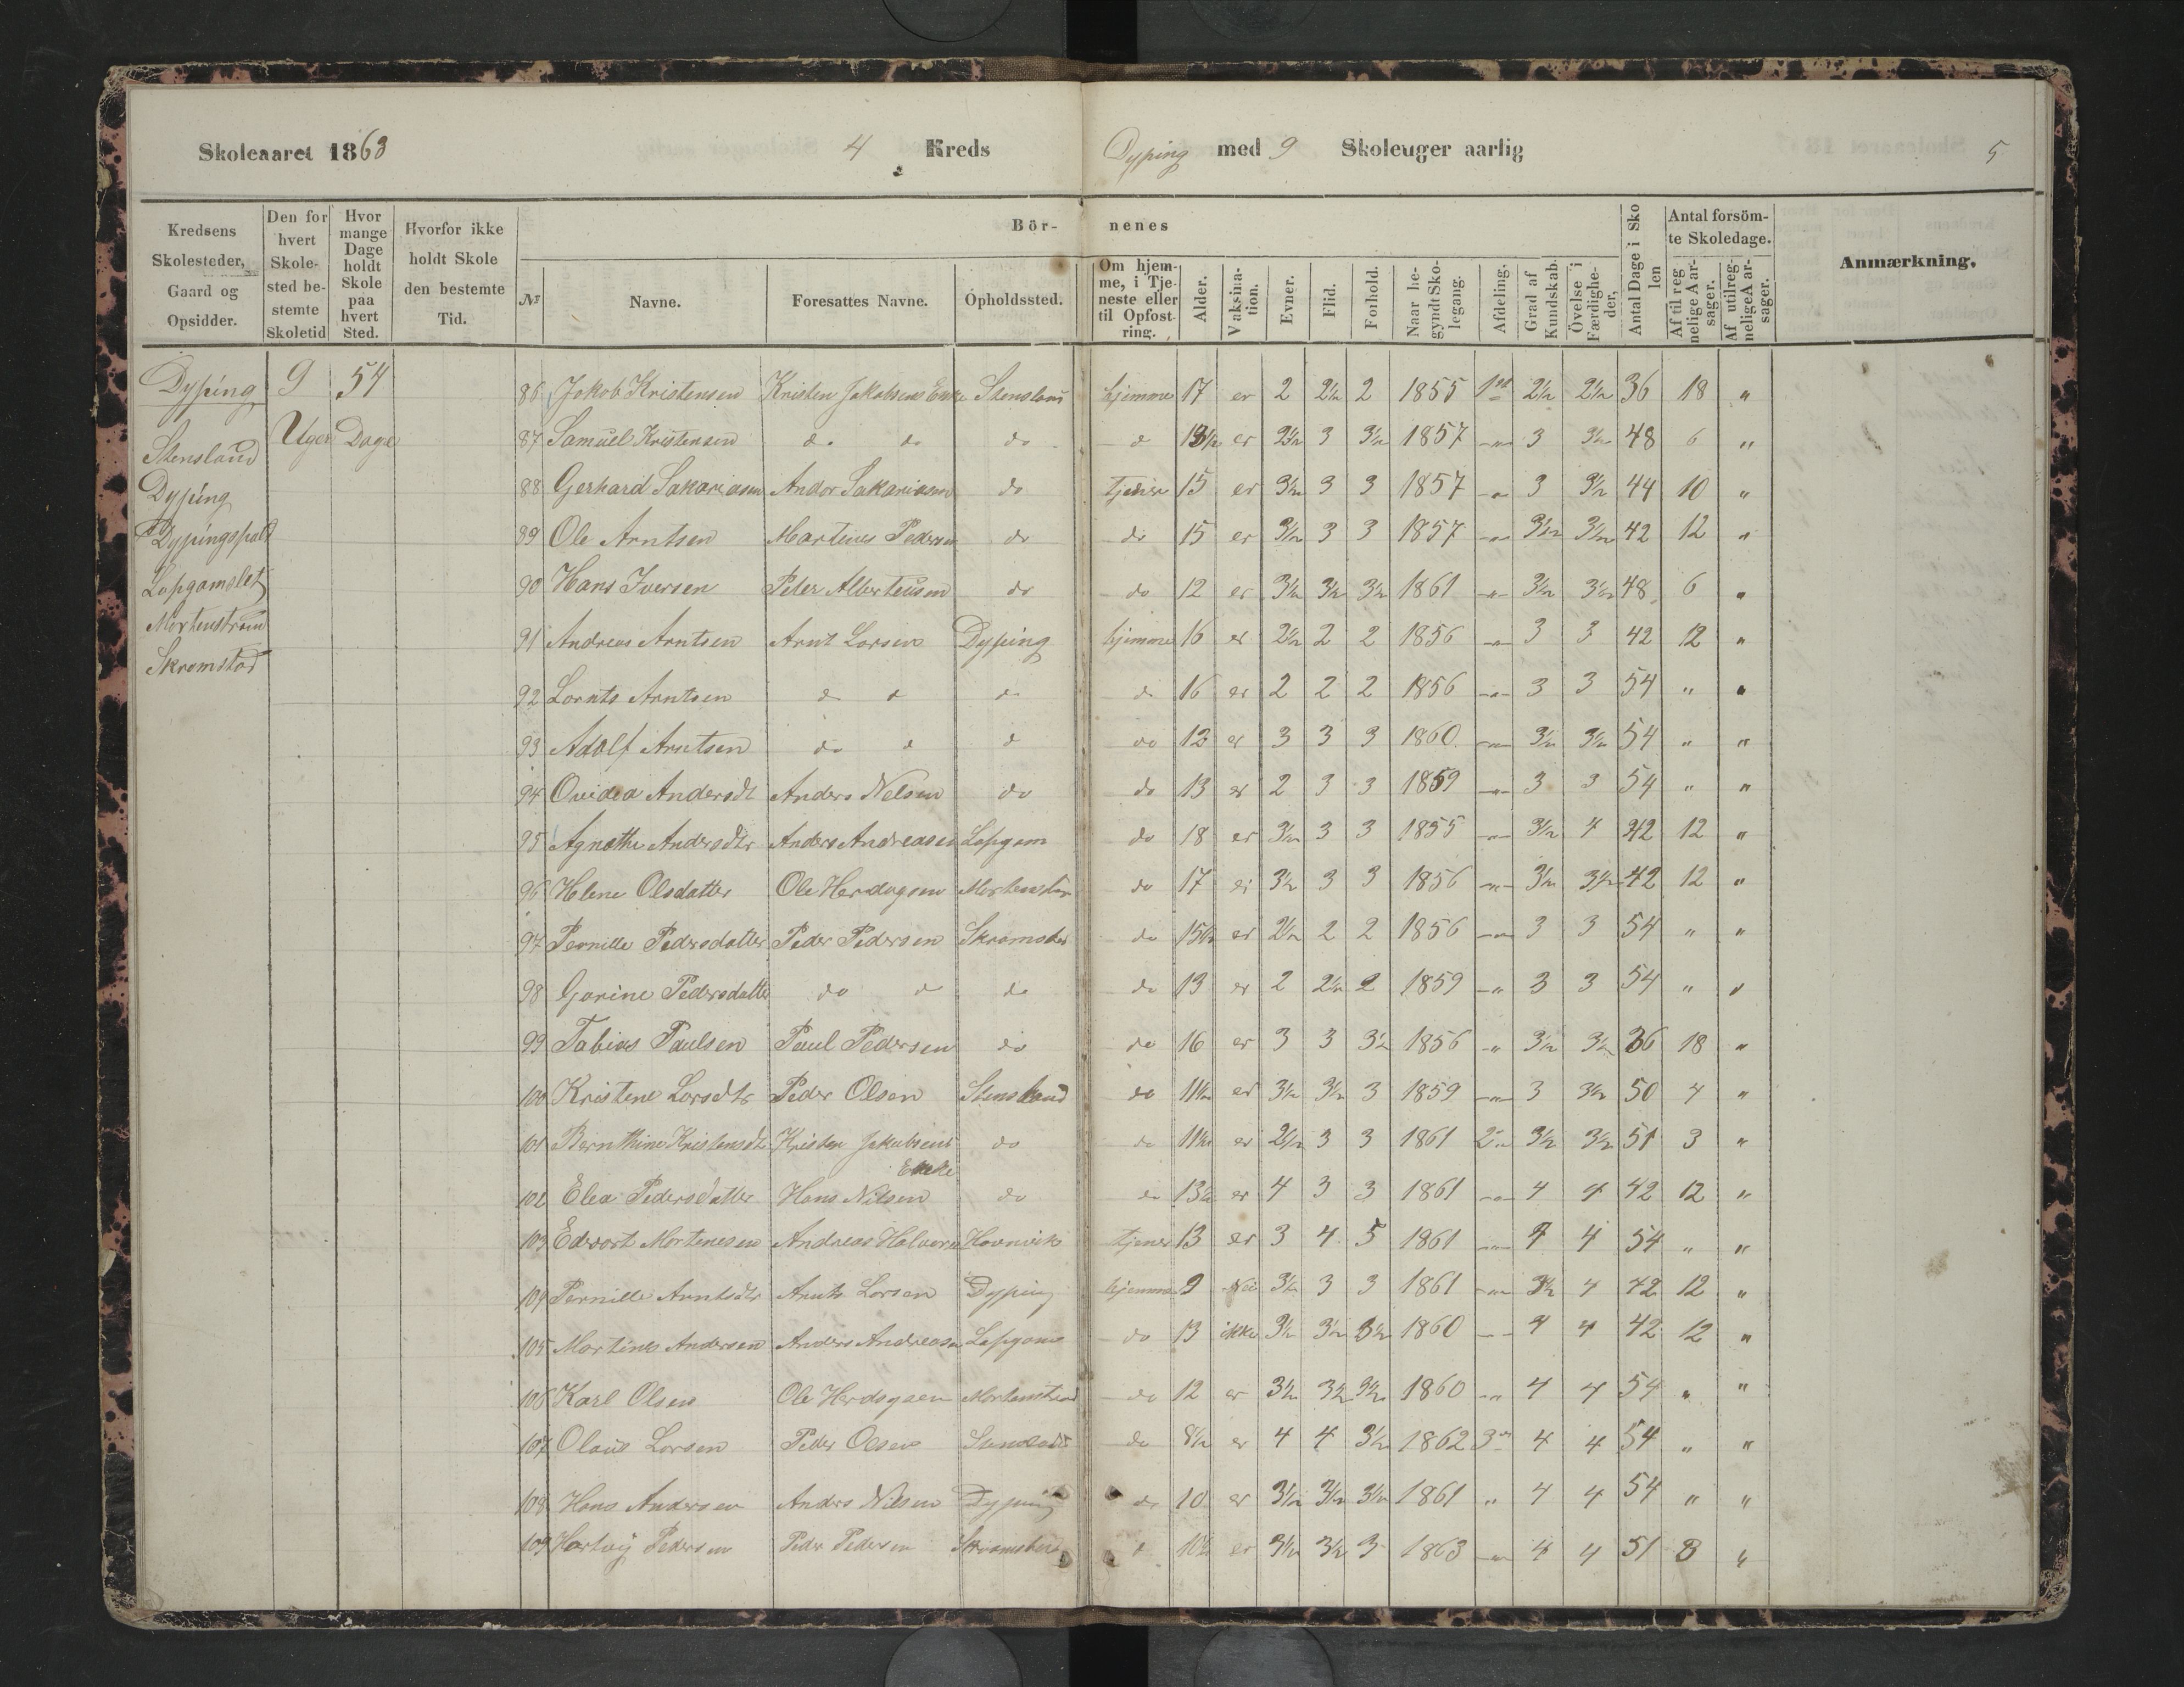 Skoleaaret 1863 4 Kreds Dyping med 9 Skoleuger aarlig 5
Kredsens Skolesteder, Gaard og Opsidder.
Den for hvert Skolested bestemte Skoletid
Hvor mange Dage holdt Skole paa hvert Sted.
Hvorfor ikke holdt Skole den bestemte Tid.
Bör- nenes
No
Navne.
Foresattes Navne.
Opholdssted.
Om hjemme, i Tjeneste eller til Opfostring.
Alder.
Vaksination.
Evner.
Flid.
Forhold.
Naar begyndt Skolegang.
Afdeling.
Grad af Kundskab.
Övelse i Færdigheder,
Antal Dage i Skolen
Antal forsömte Skoledage.
Af til regnelige Aarsager.
Af utilregnelige Aarsager.
Anmærkning.
Dyping 9 54
Uger Dage
Stensland
Dyping
Dypingspold
Lapgamslet
Mortenstrand
Skramstad
86 Jakob Kristensen Kristen Jakobsens Enke Stensland hjemme 17 er 2 2½ 2 1855 1st 2½ 2½ 36 18 "
87 Samuel Kristensen do do do d er 2½ 3 3½ 1857 -"- 3 3½ 48 6 "
88 Gerhard Sakariasen Andor Sakariasen do tjener 15 er 3½ 3 3 1857 -"- 3 3½ 44 10 "
89 Ole Arntsen Martinus Pedersen do do 15 er 3½ 3 3 1857 -"- 3½ 3½ 42 12 "
90 Hans Iversen Peter Alberteusen do do 12 er 3½ 3½ 3½ 1861 -"- 3½ 3½ 48 6 "
91 Andreas Arntsen Arnt Larsen Dyping hjemme 16 er 2½ 2 2 1856 -"- 3 3 42 12 "
92 Lornts Arntsen d d d do 16 er 2 2 2 1856 -"- 3 3 54 " "
93 Adolf Arntsen do d d do 12 er 3 3 3 1860 -"- 3½ 3½ 54 " "
94 Ovidea Andersdt Anders Nelsen do do 13 er 2 3 3 1859 -"- 3 3 54 " "
95 Agnethe Andersdtr Anders Andreasen Lapgam do 18 er 3½ 3 3 1855 -"- 3½ 4 42 12 "
96 Helene Olsdatter Ole Herdagsen do 17 er 3½ 3 3 1856 -"- 3½ 3½ 42 12 "
97 Pernille Pedersdatter Peder Pedersen Skramstad do 15½ er 2½ 2 2 1856 -"- 3 3 54 " "
98 Gorine Pedersdatter do d do do 13 er 2 2½ 2 1859 -" 3 3 54 " "
99 Tobias Paulsen Paul Pedersen do do 16 er 3 3 3½ 1856 -" 3½ 3½ 36 18 "
100 Kristene Larsdtr Peder Olsen Stensland do 11½ er 3½ 3½ 3 1859 -"- 3 3½ 50 4 "
101 Bernthine Kristensdt Kristen Jakobsens Enke do do 11½ er 2½ 3 3 1861 2 3½ 3½ 51 3 "
102 Elea Pedersdatter Hans Nilsen do do 13½ er 4 3 3 1861 -"- 4 4 42 12 "
103 Edvart Mortenesen Andreas Halvorsen Havnvik tjener 13 er 3 4 5 1861 -"- 4 4 54 " "
104 Pernille Arntsdtr Arnts Larsen Dyping hjemme 9 Nei 3½ 3 3 1861 -"- 3½ 4 42 12 "
105 Martines Andersen Anders Andreasen Lapgam do 13 ikke 3½ 3½ 3½ 1860 - - 4 4 42 12 "
106 Karl Olsen Ole Herdagsen Mortenstrand do 12 er 3½ 3½ 3½ 1860 -" 4 4 54 " "
107 Olaus Larsen Peder Olsen do 8½ er 4 4 3½ 1862 3 4 4 54 " "
108 Hans Andersen Anders Nilsen Dyping do 10 er 3½ 3½ 3½ 1861 " 4 4 54 " "
109 Hartvig Pedersen Peder Pedersen d 10½ er 3½ 3½ 3 1863 -"- 4 4 51 3 "